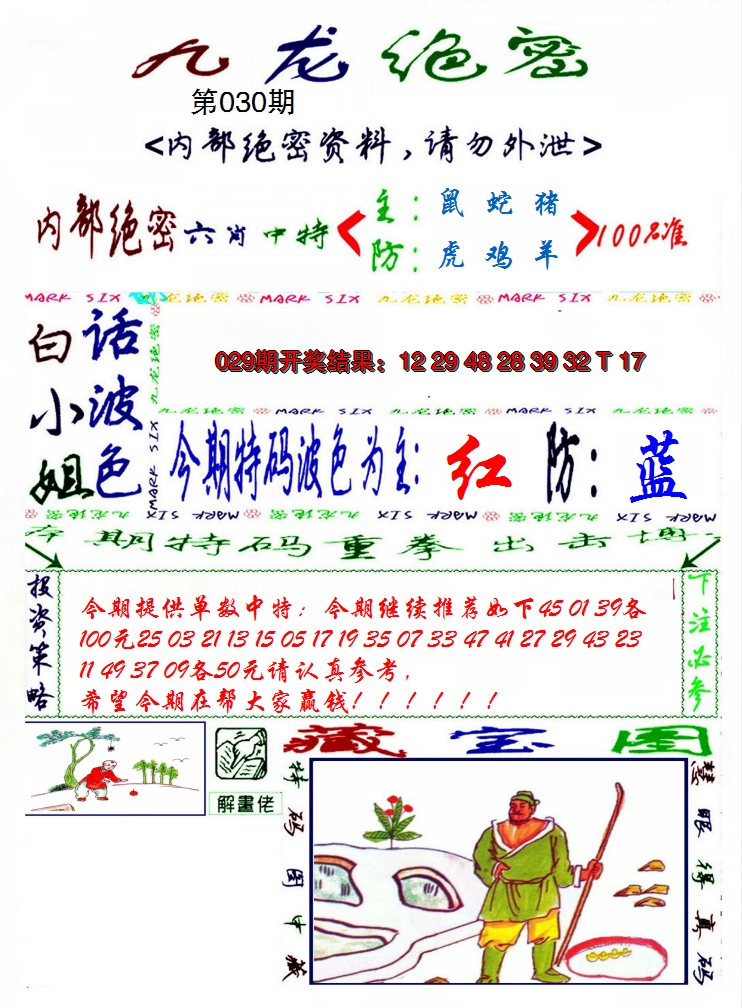 九龙绝密
第030期
<内部绝密资料,请勿外泄>
内部绝密六肖中特
主:鼠 蛇 猪
防:虎 鸡 羊
100%准
MARK SIX 九龙绝密 MARK SIX 九龙绝密 MARK SIX 九龙绝密
白小姐
话波色
九龙绝密 MARK SIX
029期开奖结果：12 29 48 28 39 32 T 17
九龙绝密 MARK SIX 九龙绝密 MARK SIX 九龙绝密
今期特码波色为主:红 防:蓝
MARK SIX 九龙绝密 MARK SIX 九龙绝密 MARK SIX
本期特码重拳出击博
投资策略
今期提供单数中特；今期继续推荐如下45 01 39各
100元25 03 21 13 15 05 17 19 35 07 33 47 41 27 29 43 23
11 49 37 09各50元请认真参考,
希望今期在帮大家赢钱！！！！！！
下注必参
解畫佬
藏宝图
特码图中藏
慧眼得真码